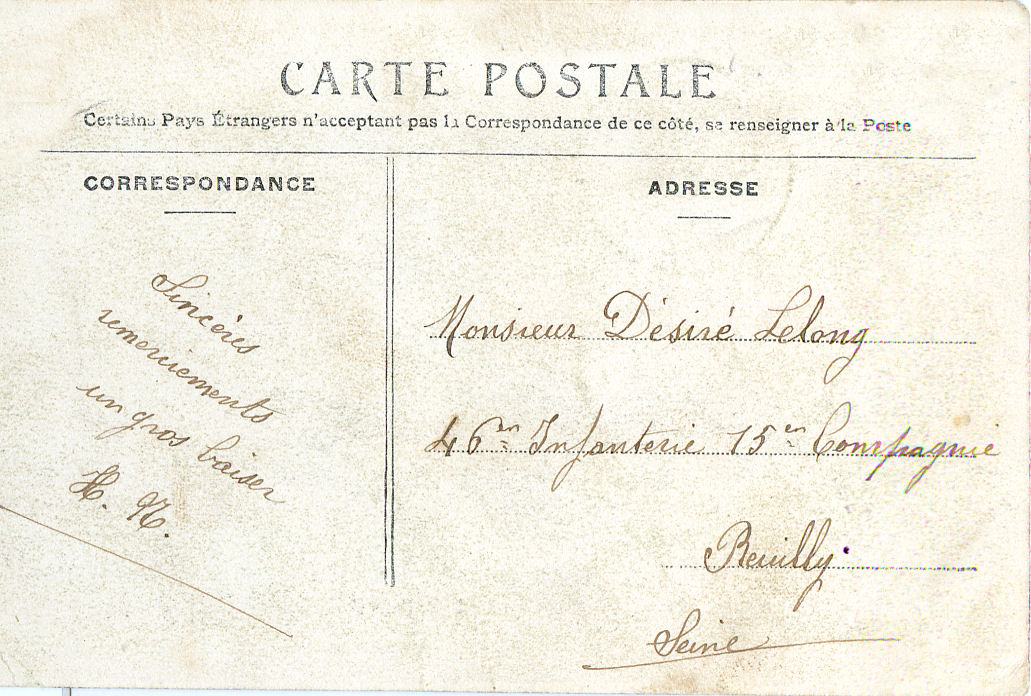 CARTE POSTALE
Certains Pays Étrangers n'acceptant pas la Correspondance de ce côté, se renseigner à la Poste
CORRESPONDANCE
Sincères
remerciements
un gros baiser
H. N.
ADRESSE
Monsieur Désiré Lelong
46en Infanterie 15en Compagnie
Reuilly
Seine